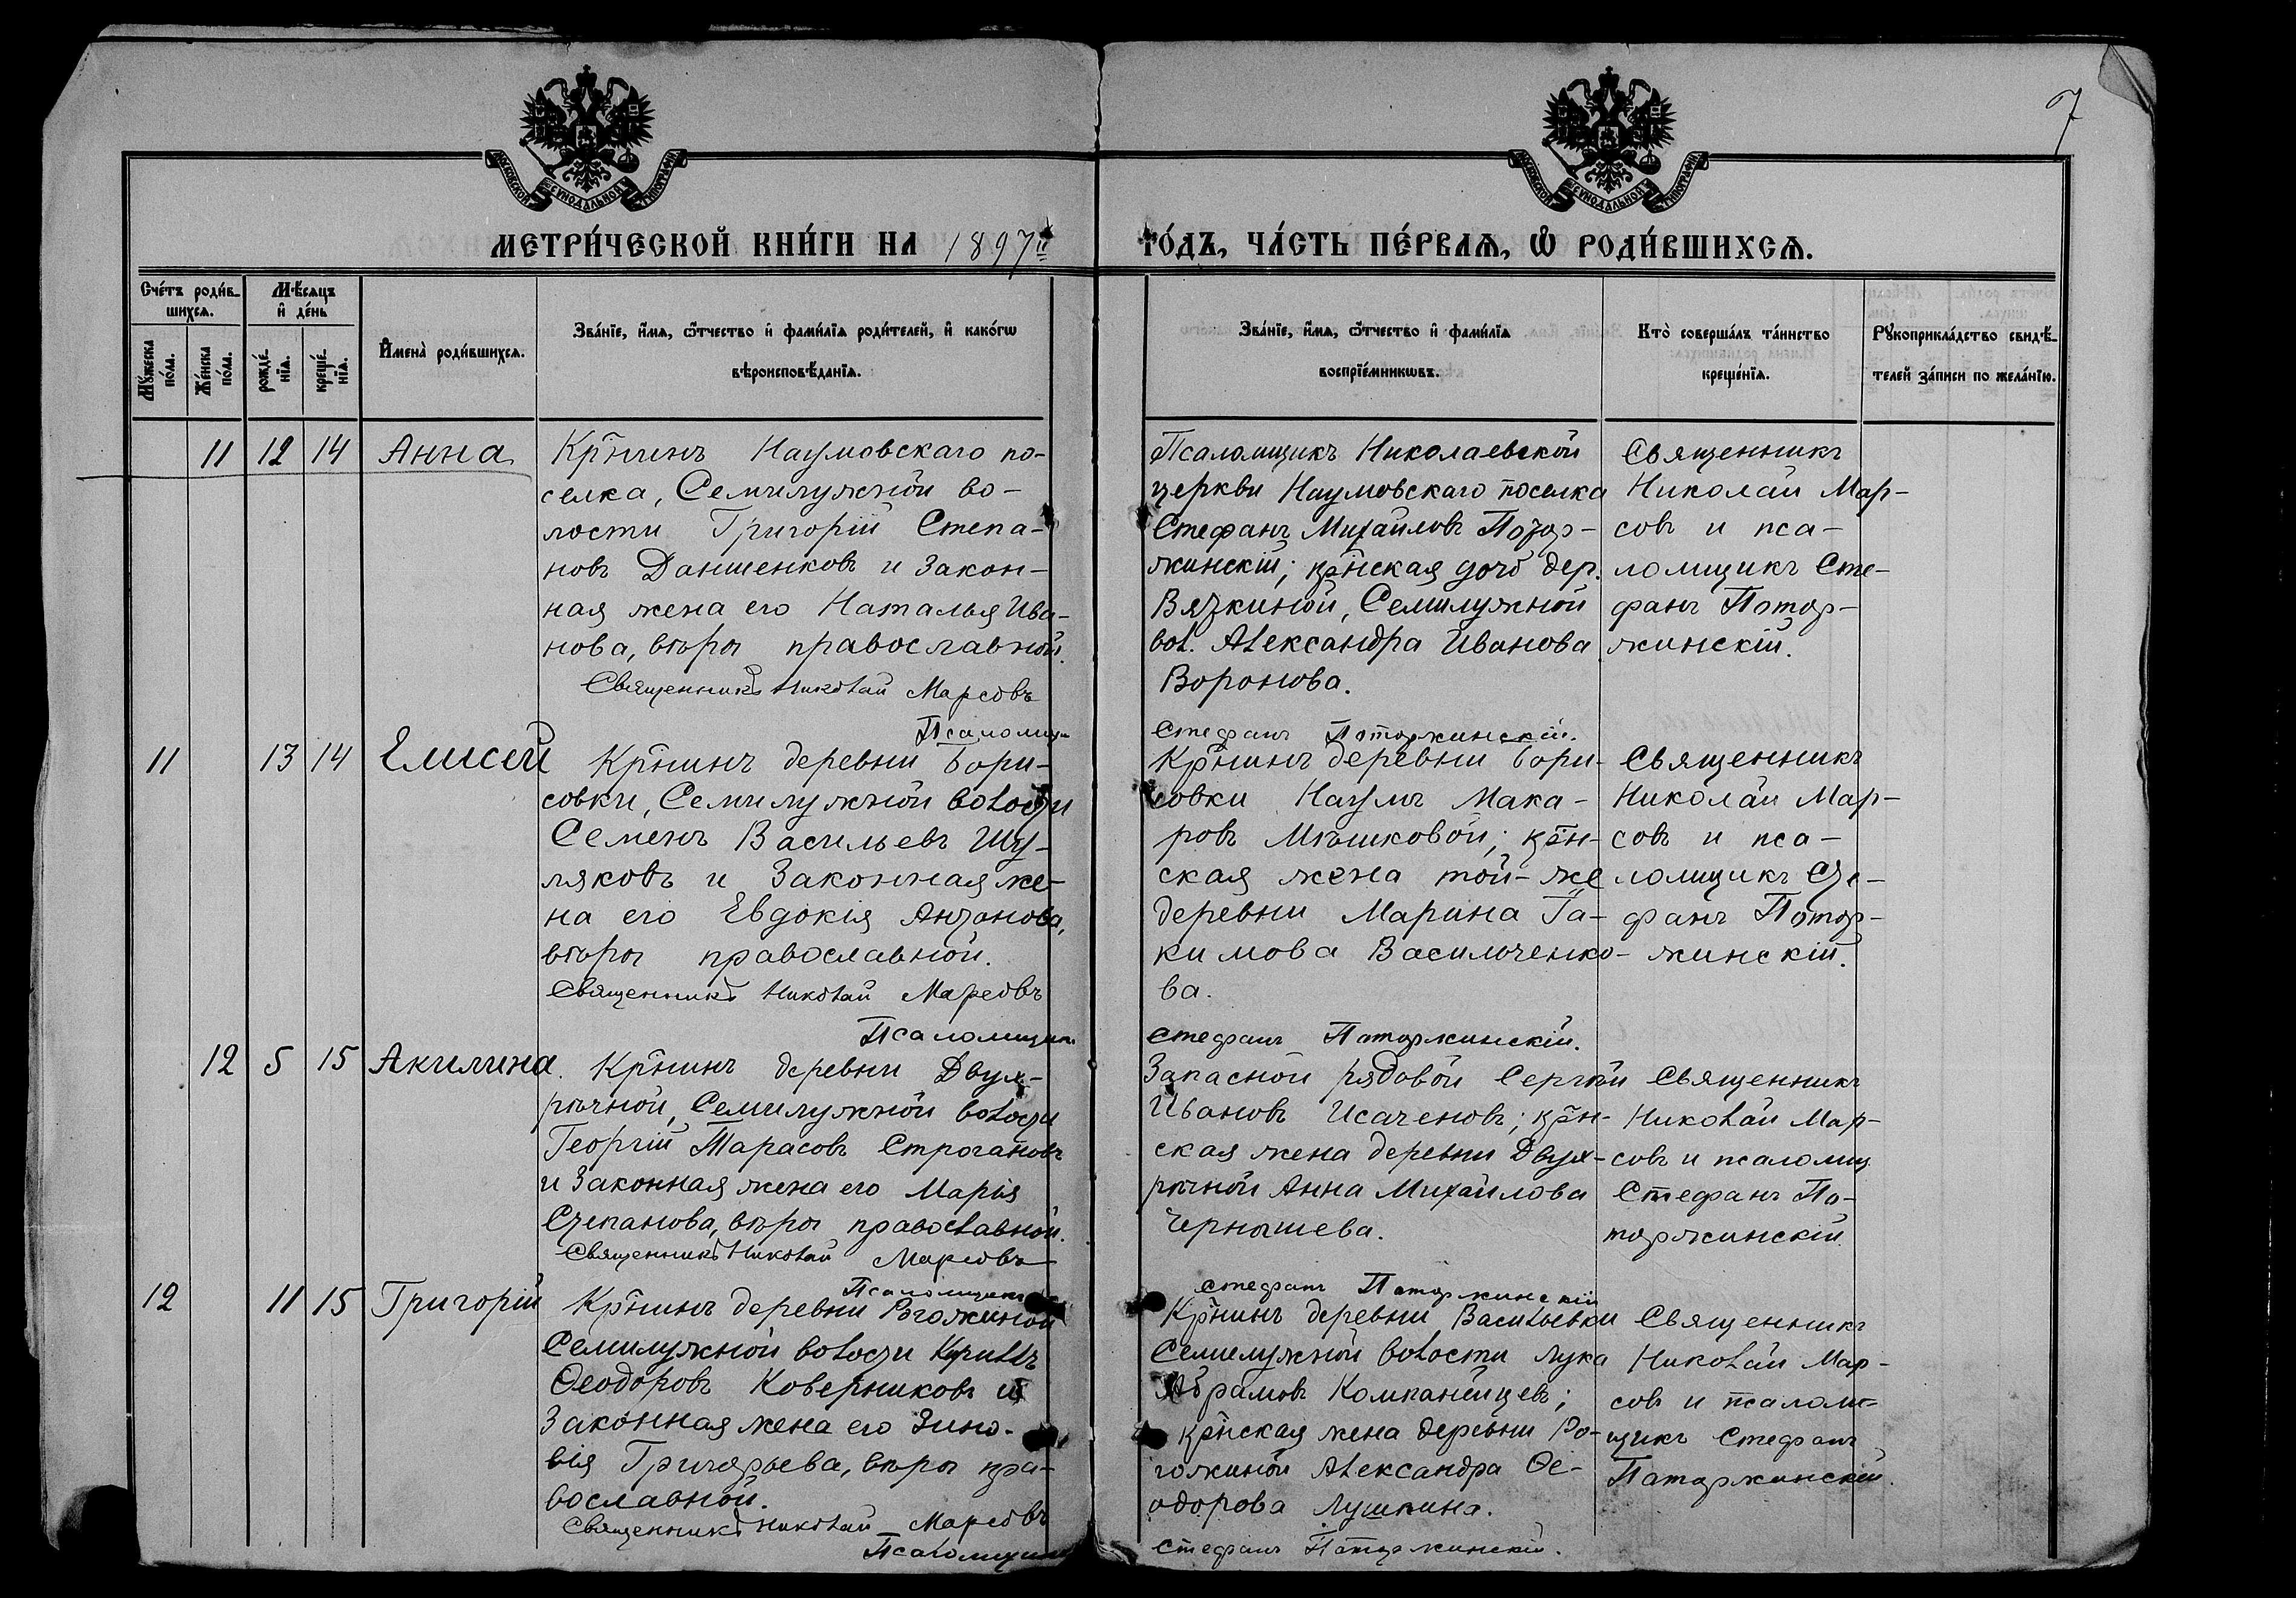 7
МОСКОВСКОЙ СУНОДАЛЬНОЙ ТИПОГРАФІИ
МОСКОВСКОЙ СУНОДАЛЬНОЙ ТИПОГРАФІИ
МЕТРИ́ЧЕСКОЙ КНИ́ГИ НА 1897й
ГО́ДЪ, ЧА́СТЬ ПЕ́РВАѦ, Ѡ҆ РОДИ́ВШИХСѦ.
Сче́тъ роди́в-
шихсѧ.
Мѣ́сѧцъ
и҆ де́нь
Мꙋ́жеска
по́ла.
Же́нска
по́ла.
рожде́-
нїѧ.
креще́-
нїѧ.
И҆мена̀ роди́вшихсѧ.
Зва́нїе, и҆́мѧ, ѻ҆́тчество и҆ фами́лїѧ роди́телей, и҆ како́гѡ
вѣроисповѣ́данїѧ.
Зва́нїе, и҆́мѧ, ѻ҆́тчество и҆ фами́лїѧ
воспрїе́мникѡвъ.
Кто̀ соверша́лъ та́инство
креще́нїѧ.
Рꙋкоприкла́дство свидѣ́-
телей за́писи по жела́нїю.
11 12 14 Анна
Кр̄нинъ Наумовскаго по-
селка, Семилужной во-
лости Григорій Степа-
новъ Даншенковъ и закон-
ная жена его Наталья Ива-
нова, вѣры православной.
Священникъ Николай Марсовъ
Псаломщи
Псаломщикъ Николаевской
церкви Наумовскаго поселка
Стефанъ Михайловъ Потор-
жинскій; кр̄нская дочь дер.
Вязкиной, Семилужной
вол. Александра Иванова
Воронова.
Стефанъ Поторжинскій.
Священникъ
Николай Мар-
совъ и пса-
ломщикъ Сте-
фанъ Потор-
жинскій.
11 13 14 Елисей
Кр̄нинъ деревни Бори-
совки, Семилужной волости
Семенъ Васильевъ Шу-
ляковъ и законная же-
на его Евдокія Антонова,
вѣры православной.
Священникъ Николай Марсовъ
Псаломщикъ
Кр̄нинъ деревни Бори-
совки Наумъ Мака-
ровъ Мѣшковой; кр̄н-
ская жена той-же
деревни Марина Іа-
кимова Васильченко-
ва.
Стефанъ Поторжинскій.
Священникъ
Николай Мар-
совъ и пса-
ломщикъ Сте-
фанъ Потор-
жинскій.
12 5 15 Акилина
Кр̄нинъ деревни Двух-
рѣчной, Семилужной волости
Георгій Тарасовъ Строгановъ
и законная жена его Марія
Степанова, вѣры православной.
Священникъ Николай Марсовъ
Псаломщикъ
Запасной рядовой Сергѣй
Ивановъ Исаченовъ; кр̄н-
ская жена деревни Двух-
рѣчной Анна Михайлова
Чернышева.
Стефанъ Поторжинскій
Священникъ
Николай Мар-
совъ и псаломщ.
Стефанъ По-
торжинскій
12 11 15 Григорій
Кр̄нинъ деревни Рогожиной
Семилужной волости Кириллъ
Ѳеодоровъ Коверниковъ и
законная жена его Зино-
вія Григорьева, вѣры пра-
вославной.
Священникъ Николай Марсовъ
Псаломщикъ
Кр̄нинъ деревни Васильевки
Семилужной волости Лука
Абрамовъ Компанейцевъ;
кр̄нская жена деревни Ро-
гожиной Александра Ѳе-
одорова Лушкина.
Стефанъ Поторжинскій.
Священникъ
Николай Мар-
совъ и псалом-
щикъ Стефанъ
Поторжинскій.